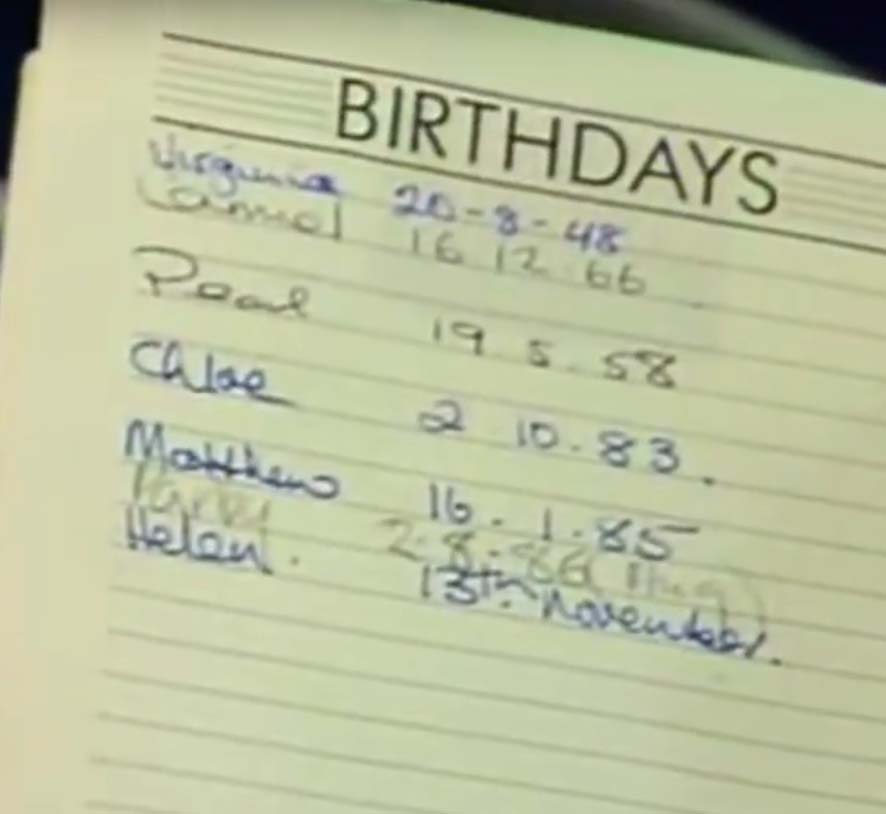 BIRTHDAYS
Virginia 20-8-48
16 12 66
Pearl 19 5. 58
Chloe 2 10. 83.
Matthew 16. 1. 85
2.8.
Helen. 13th. November.